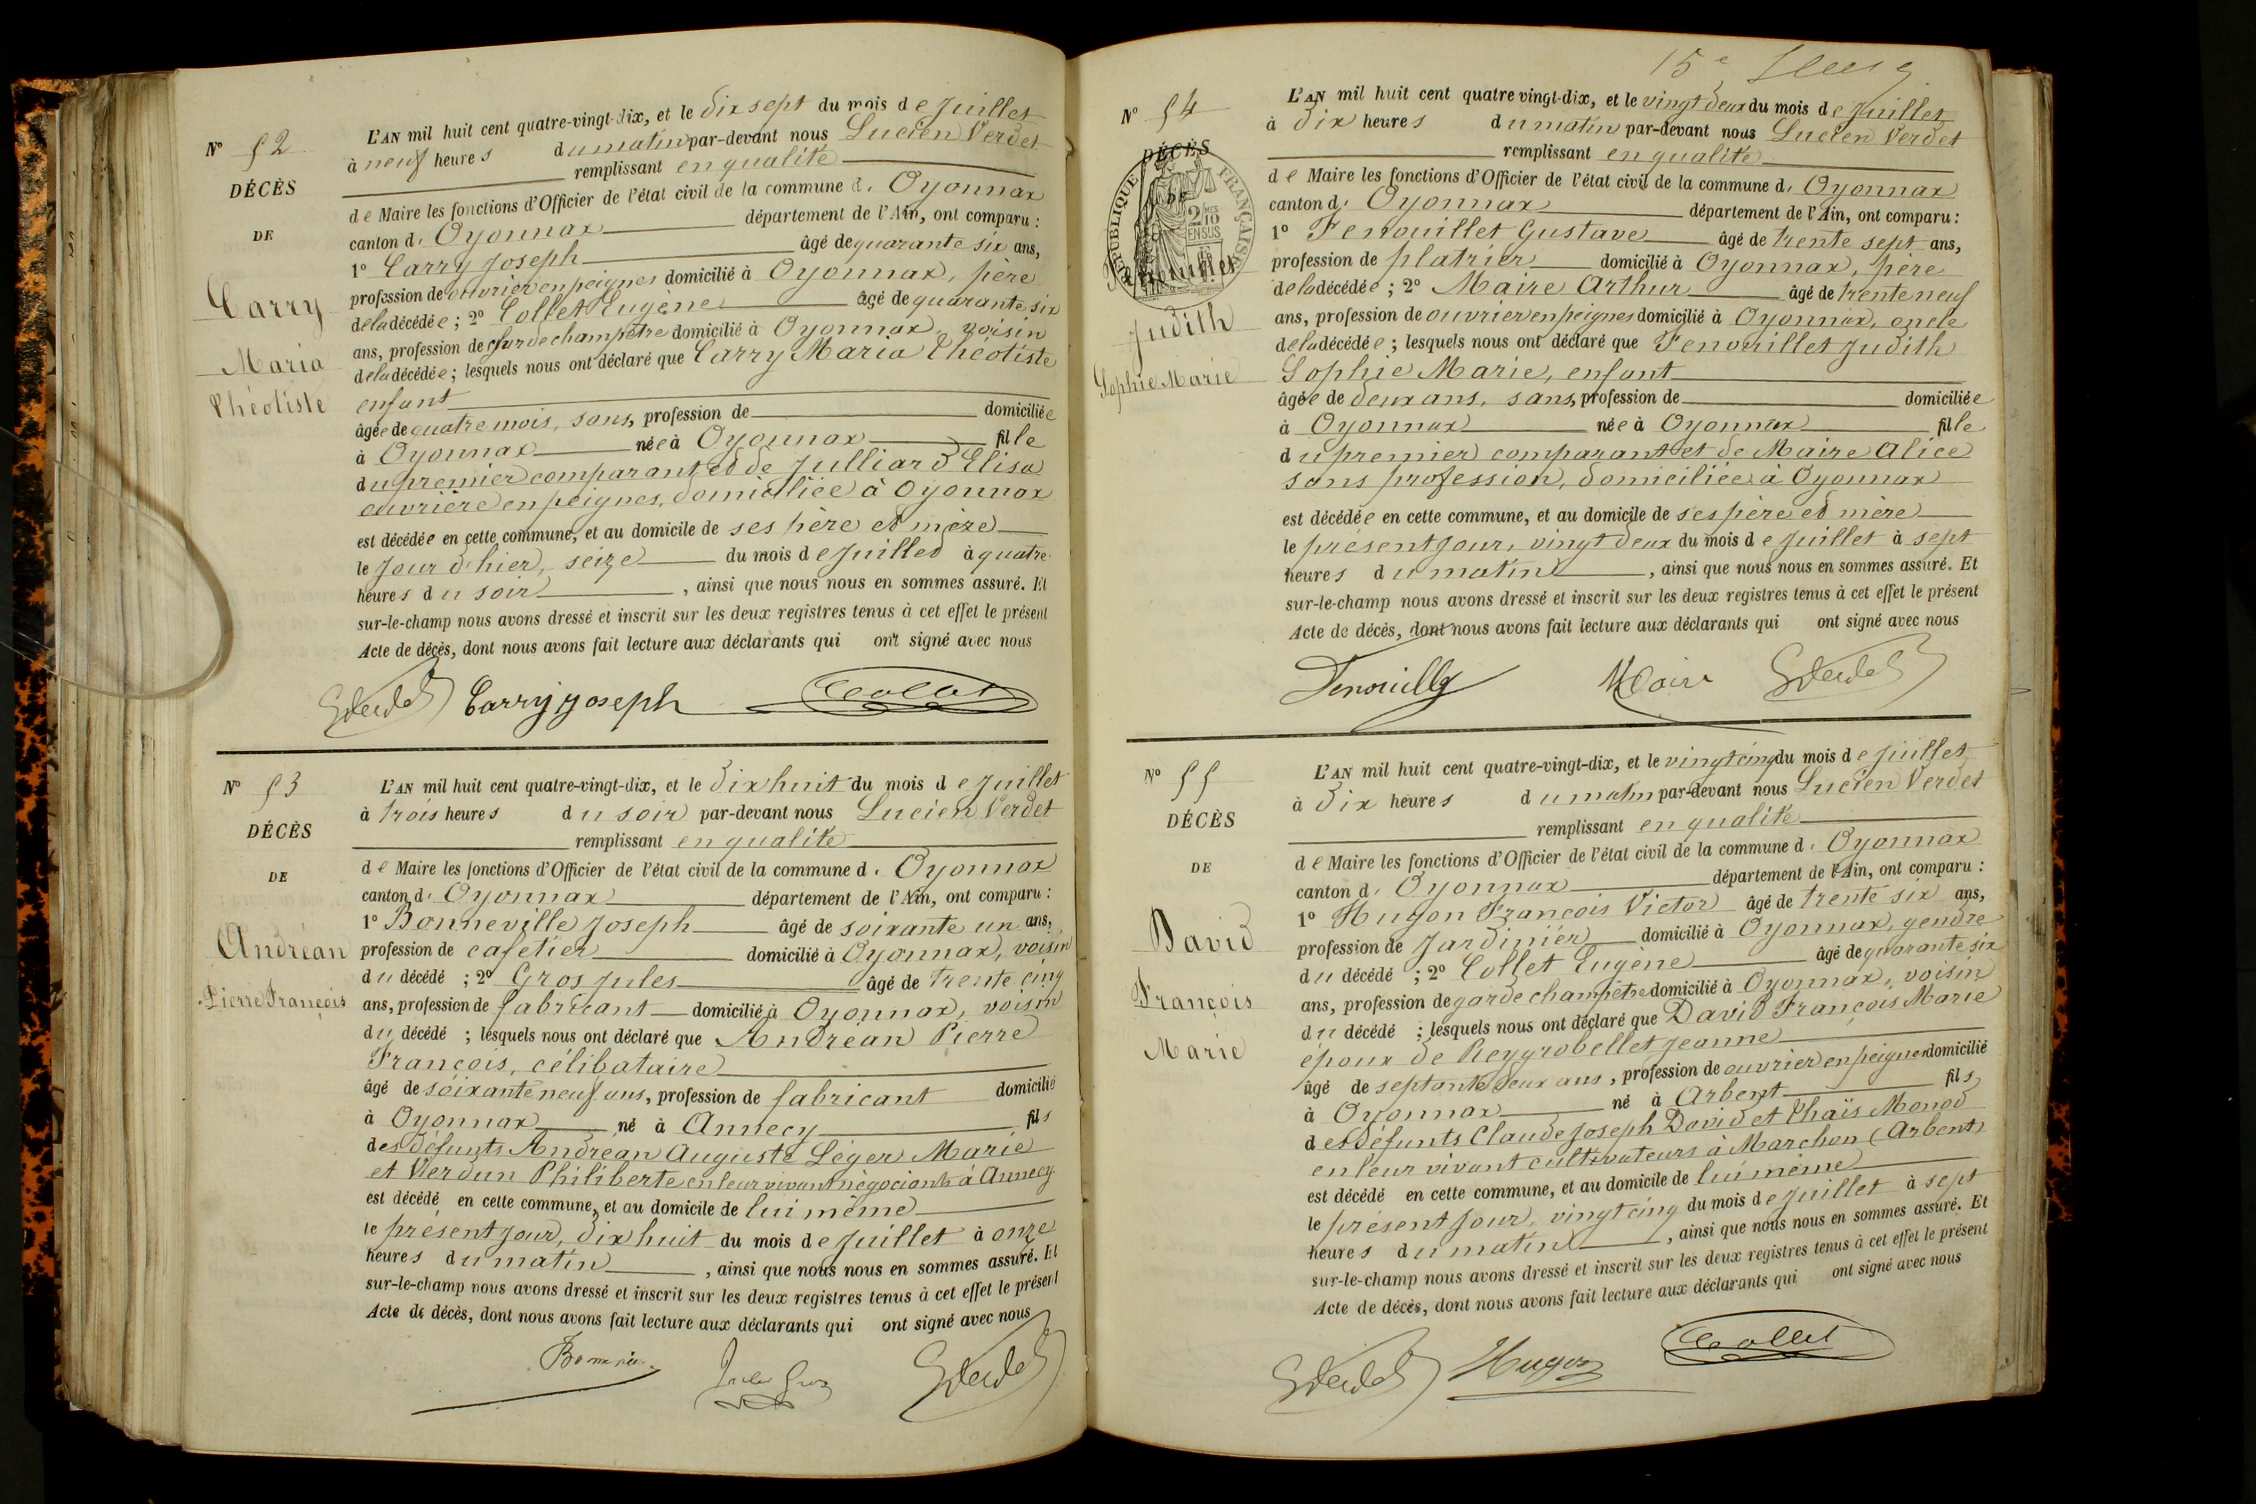 Nº 52
DÉCÈS
DE
Carry
Maria
Théotiste
L'AN mil huit cent quatre-vingt-dix, et le dix sept du mois de Juillet
à neuf heures du matin par-devant nous Lucien Verdet
remplissant en qualité
de Maire les fonctions d'Officier de l'état civil de la commune d. Oyonnax
canton d. Oyonnax département de l'Ain, ont comparu :
1º Carry Joseph âgé de quarante six ans,
profession de ouvrier en peignes domicilié à Oyonnax, père
de la décédée ; 2º Collet Eugène âgé de quarante six
ans, profession de garde champêtre domicilié à Oyonnax, voisin
de la décédée ; lesquels nous ont déclaré que Carry Maria Théotiste
enfant
âgée de quatre mois, sans, profession de domiciliée
à Oyonnax née à Oyonnax fille
du premier comparant et de Julliard Elisa
ouvrière en peignes, domiciliée à Oyonnax
est décédée en cette commune, et au domicile de ses père et mère
le jour d'hier, seize du mois de Juillet à quatre
heures du soir, ainsi que nous nous en sommes assuré. Et
sur-le-champ nous avons dressé et inscrit sur les deux registres tenus à cet effet le présent
Acte de décès, dont nous avons fait lecture aux déclarants qui ont signé avec nous
Carry joseph Collet
Nº 53
DÉCÈS
DE
Andréan
Pierre François
L'AN mil huit cent quatre-vingt-dix, et le dix huit du mois de Juillet
à trois heures du soir par-devant nous Lucien Verdet
remplissant en qualité
de Maire les fonctions d'Officier de l'état civil de la commune d. Oyonnax
canton d. Oyonnax département de l'Ain, ont comparu :
1º Bonneville Joseph âgé de soixante un ans,
profession de cafetier domicilié à Oyonnax, voisin
du décédé ; 2º Gros Jules âgé de trente cinq
ans, profession de fabricant domicilié à Oyonnax, voisin
du décédé ; lesquels nous ont déclaré que Andréan Pierre
François, célibataire
âgé de soixante neuf ans, profession de fabricant domicilié
à Oyonnax né à Annecy fils
des défunts Andréan Auguste Léger Marie
et Verdun Philiberte en leur vivant négociants à Annecy
est décédé en cette commune, et au domicile de lui même
le présent jour, dix huit du mois de Juillet à onze
heures du matin, ainsi que nous nous en sommes assuré. Et
sur-le-champ nous avons dressé et inscrit sur les deux registres tenus à cet effet le présent
Acte de décès, dont nous avons fait lecture aux déclarants qui ont signé avec nous
Jules Gros
15e
Nº 54
DÉCÈS
DE
RÉPUBLIQUE FRANÇAISE
2/10 EN SUS
Fenouillet
Judith
Sophie Marie
L'AN mil huit cent quatre vingt-dix, et le vingt deux du mois de Juillet
à dix heures du matin par-devant nous Lucien Verdet
remplissant en qualité
de Maire les fonctions d'Officier de l'état civil de la commune d. Oyonnax
canton d. Oyonnax département de l'Ain, ont comparu :
1º Fenouillet Gustave âgé de trente sept ans,
profession de platrier domicilié à Oyonnax, père
de la décédée ; 2º Maire Arthur âgé de trente neuf
ans, profession de ouvrier en peignes domicilié à Oyonnax, oncle
de la décédée ; lesquels nous ont déclaré que Fenouillet Judith
Sophie Marie, enfant
âgée de deux ans, sans, profession de domiciliée
à Oyonnax née à Oyonnax fille
du premier comparant et de Maire Alice
sans profession, domiciliée à Oyonnax
est décédée en cette commune, et au domicile de ses père et mère
le présent jour, vingt deux du mois de Juillet à sept
heures du matin, ainsi que nous nous en sommes assuré. Et
sur-le-champ nous avons dressé et inscrit sur les deux registres tenus à cet effet le présent
Acte de décès, dont nous avons fait lecture aux déclarants qui ont signé avec nous
Maire
Nº 55
DÉCÈS
DE
David
François
Marie
L'AN mil huit cent quatre-vingt-dix, et le vingt cinq du mois de Juillet
à dix heures du matin par-devant nous Lucien Verdet
remplissant en qualité
de Maire les fonctions d'Officier de l'état civil de la commune d. Oyonnax
canton d. Oyonnax département de l'Ain, ont comparu :
1º Hugon François Victor âgé de trente six ans,
profession de Jardinier domicilié à Oyonnax, gendre
du décédé ; 2º Collet Eugène âgé de quarante six
ans, profession de garde champêtre domicilié à Oyonnax, voisin
du décédé ; lesquels nous ont déclaré que David François Marie
époux de Reygrobellet Jeanne
âgé de septante deux ans, profession de ouvrier en peignes domicilié
à Oyonnax né à Arbent fils
des défunts Claude Joseph David et Thaïs Monod
en leur vivant cultivateurs à Marchon (Arbent)
est décédé en cette commune, et au domicile de lui même
le présent jour, vingt cinq du mois de Juillet à sept
heures du matin, ainsi que nous nous en sommes assuré. Et
sur-le-champ nous avons dressé et inscrit sur les deux registres tenus à cet effet le présent
Acte de décès, dont nous avons fait lecture aux déclarants qui ont signé avec nous
Hugon Collet